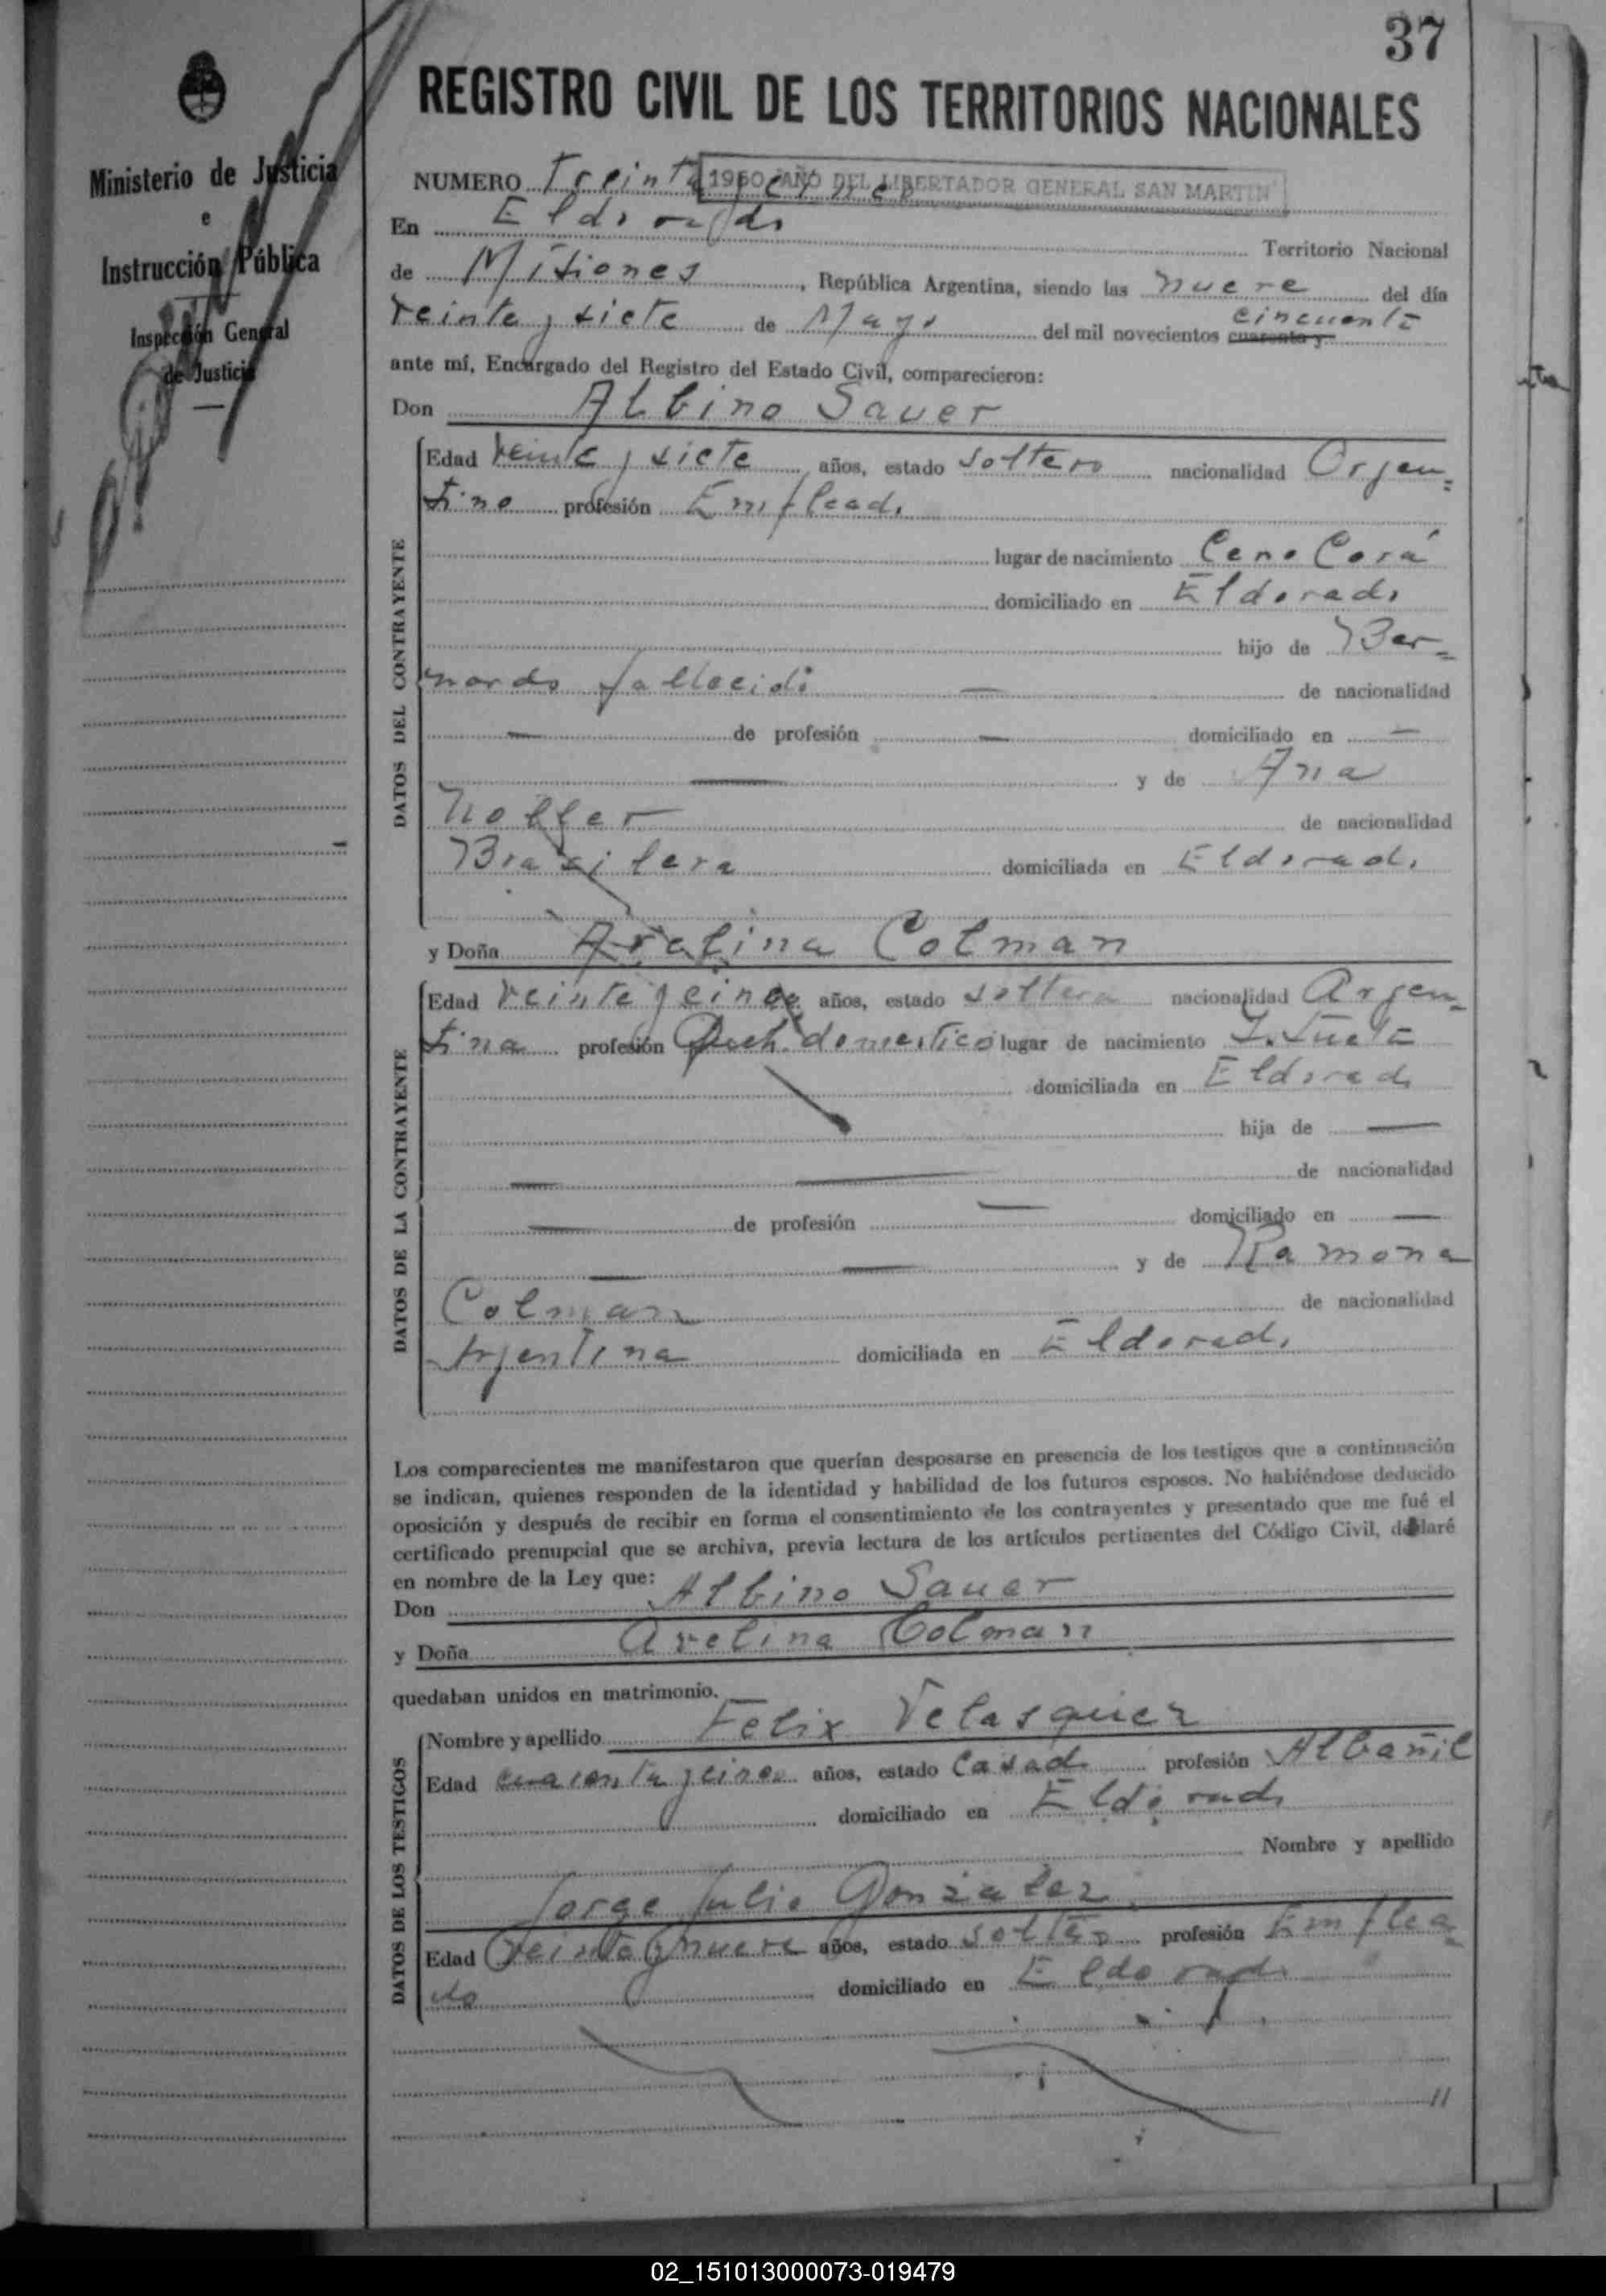 37
REGISTRO CIVIL DE LOS TERRITORIOS NACIONALES
Ministerio de Justicia
e
Instrucción Pública
Inspección General
de Justicia
NUMERO Treinta y cinco
1950 AÑO DEL LIBERTADOR GENERAL SAN MARTIN
En Eldorado Territorio Nacional
de Misiones, República Argentina, siendo las nueve del día
veinte y siete de Mayo del mil novecientos cuarenta y cincuenta
ante mí, Encargado del Registro del Estado Civil, comparecieron:
Don Albino Sauer
DATOS DEL CONTRAYENTE
Edad veinte y siete años, estado soltero nacionalidad Argen=
tino profesión Empleado
lugar de nacimiento Cerro Corá
domiciliado en Eldorado
hijo de Ber=
nardo fallecido — de nacionalidad
— de profesión — domiciliado en —
— y de Ana
Noller de nacionalidad
Brasilera domiciliada en Eldorado
y Doña Avelina Colman
DATOS DE LA CONTRAYENTE
Edad veinte y cinco años, estado soltera nacionalidad Argen=
tina profesión Queh. domestico lugar de nacimiento
domiciliada en Eldorado
hija de —
— — de nacionalidad
— de profesión — domiciliado en —
— — y de Ramona
Colman de nacionalidad
Argentina domiciliada en Eldorado
Los comparecientes me manifestaron que querían desposarse en presencia de los testigos que a continuación
se indican, quienes responden de la identidad y habilidad de los futuros esposos. No habiéndose deducido
oposición y después de recibir en forma el consentimiento de los contrayentes y presentado que me fué el
certificado prenupcial que se archiva, previa lectura de los artículos pertinentes del Código Civil, declaré
en nombre de la Ley que:
Don Albino Sauer
y Doña Avelina Colman
quedaban unidos en matrimonio.
DATOS DE LOS TESTIGOS
Nombre y apellido Felix Velasquez
Edad cuarenta y cinco años, estado Casado profesión Albañil
domiciliado en Eldorado
Nombre y apellido
Jorge Julio Gonzalez
Edad veinte y nueve años, estado soltero profesión Emplea=
do domiciliado en Eldorado
//
02_151013000073-019479